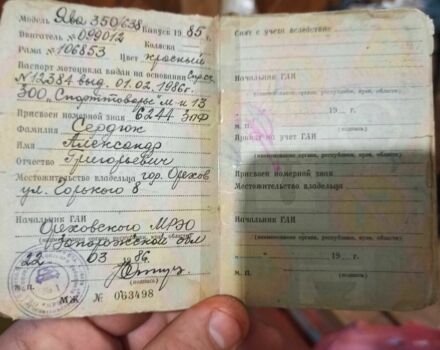 Модель Ява 350/638 Выпуск 1985 г.
Двигатель № 099012
Коляска
Рама № 106853 Цвет красный
Паспорт мотоцикла выдан на основании
№ 12384 выд. 01.02 1986г.
ЗОО „Спорттовары" м-н 13
Присвоен номерной знак 6244 ЗПФ
Фамилия Сердюк
Имя Александр
Отчество Григорьевич
Местожительство владельца гор. Орехов
ул. Горького 8
Начальник ГАИ
Ореховского МРЭО
Запорожской обл
22 03 86г.
М.п. (подпись)
МЖ № 063498
Снят с учета вследствие
Начальник ГАИ
(наименование органа, республики, края, области)
19 г.
М. П. (подпись)
Принят на учет ГАИ
(наименование органа, республики, края, области)
Присвоен номерной знак
Местожительство владельца
Начальник ГАИ
(наименование органа, республики, края, области)
19 г.
М. П. (подпись)